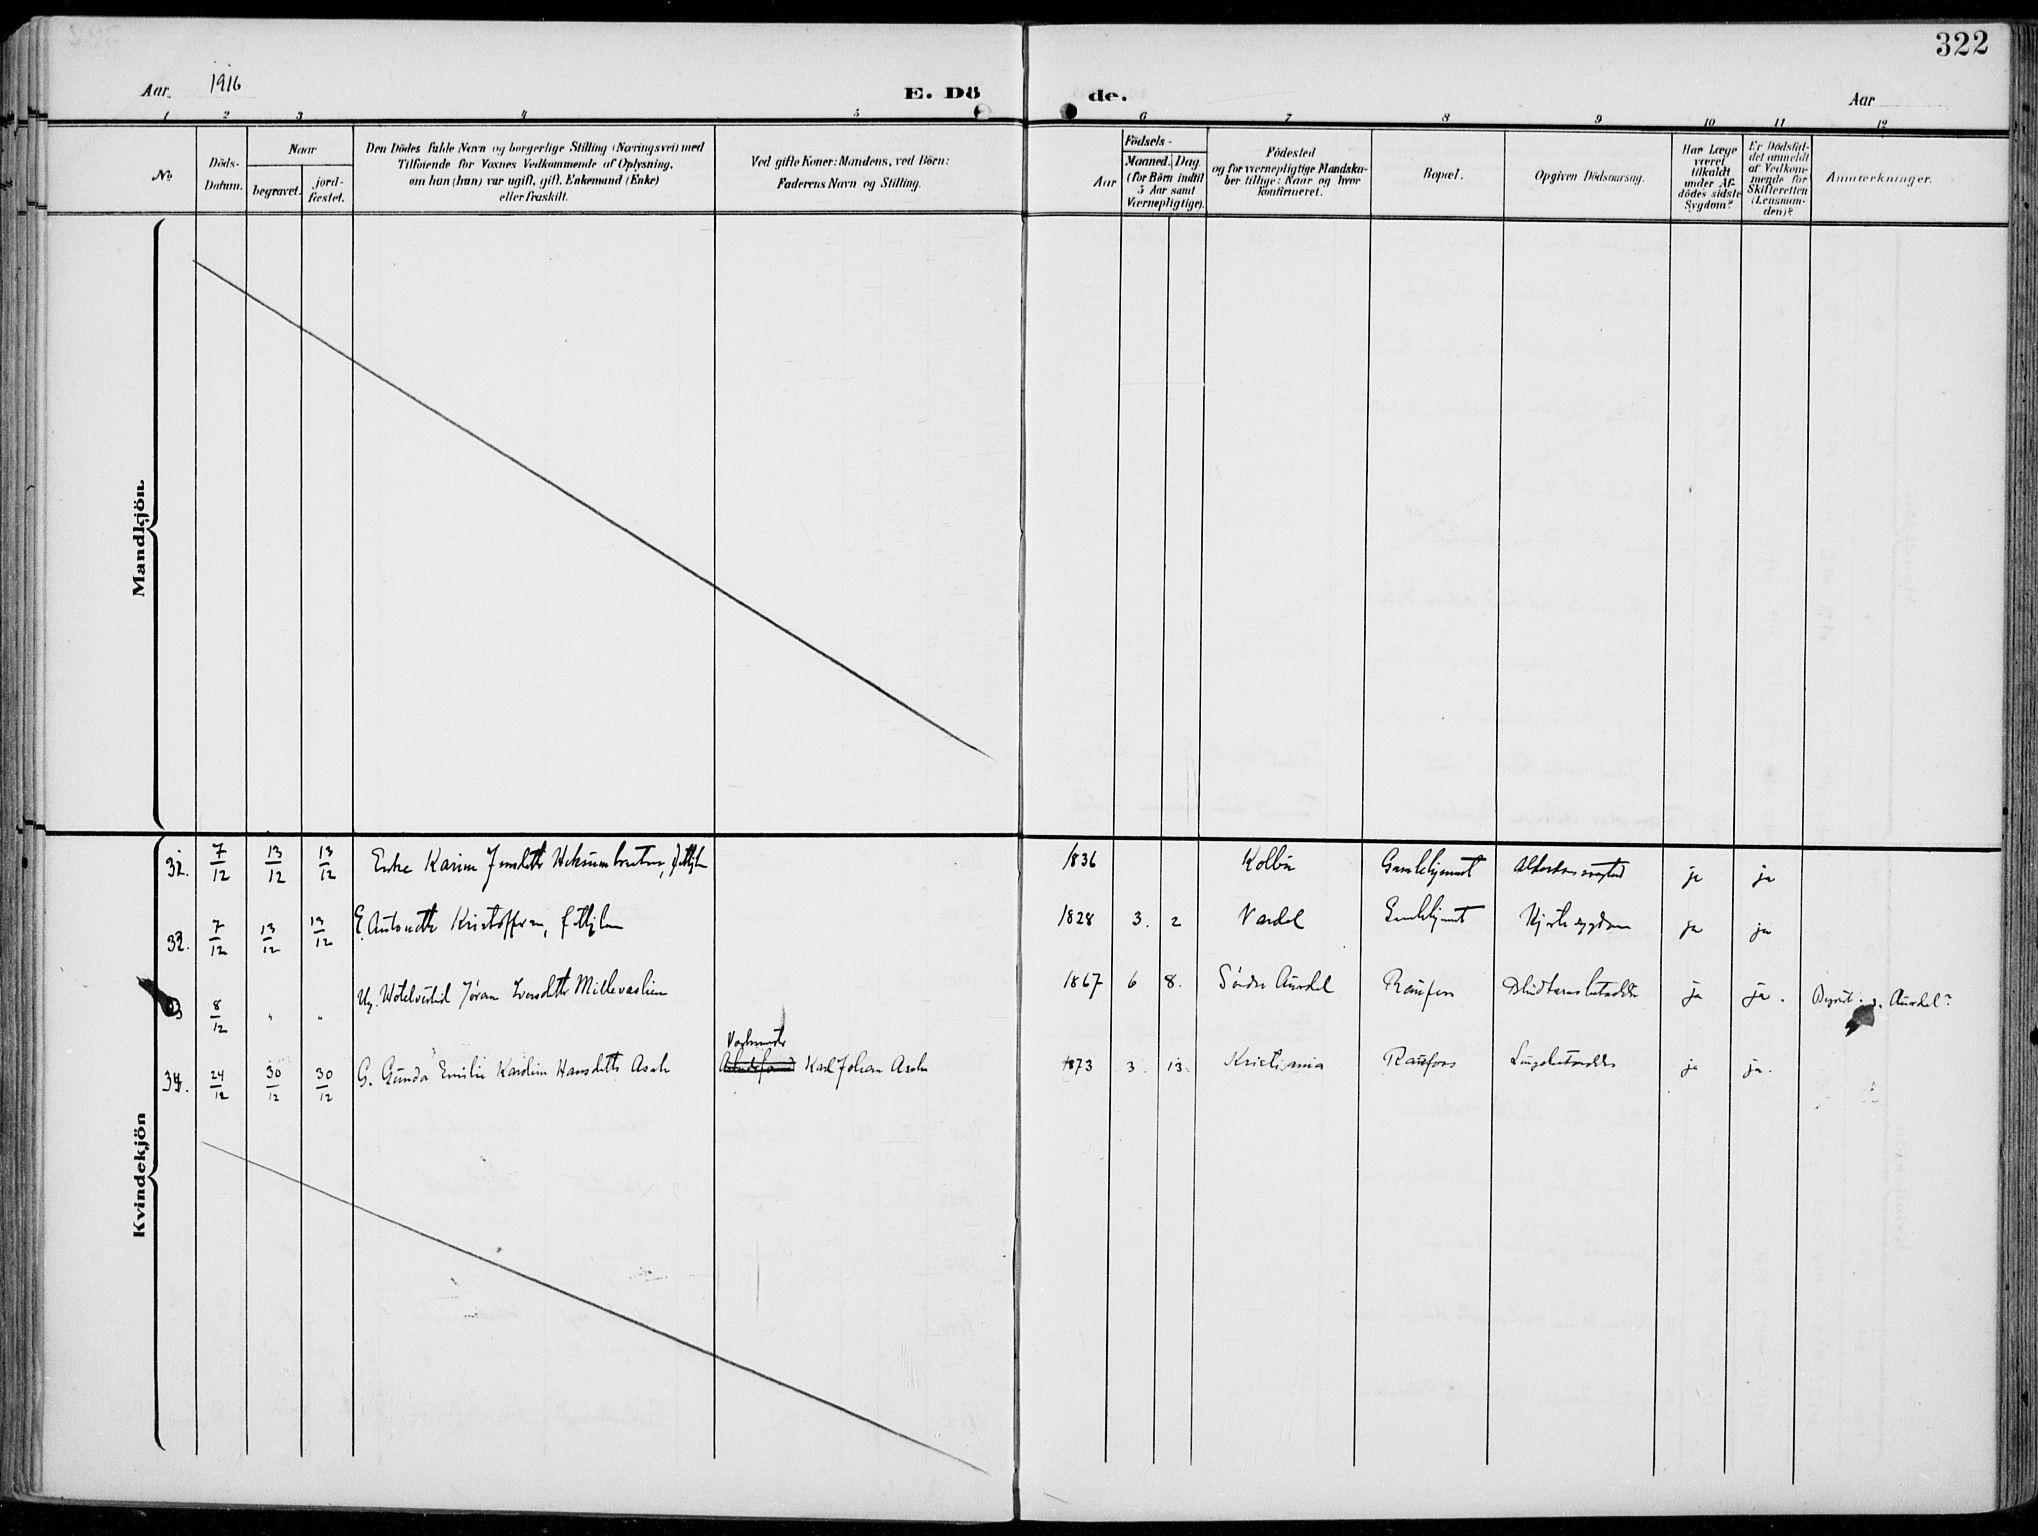 322
Aar 1916
E. Dö
de.
Aar
1 2 3 4 5 6 7 8 9 10 11 12
No
Döds-
Datum.
Naar
begravet.
jord-
fæstet.
Den Dödes fulde Navn og borgerlige Stilling (Næringsvei) med
Tilföiende for Voxnes Vedkommende af Oplysning,
om han (hun) var ugift, gift, Enkemand (Enke)
eller fraskilt.
Ved gifte Koner: Mandens, ved Börn:
Faderens Navn og Stilling.
Födsels-
Aar
Maaned. Dag.
(for Börn indtil
5 Aar samt
Værnepligtige).
Födested
og for værnepligtige Mandska-
ber tillige: Naar og hvor
konfirmeret.
Bopæl.
Opgiven Dödsaarsag.
Har Læge
været
tilkaldt
under Af-
dödes sidste
Sygdom?
Er Dödsfal-
det anmeldt
af Vedkom-
mende for
Skifteretten
(Lensman-
den)?
Anmærkninger.
Mandkjön.
Kvindekjön
7/12 13/12 13/12 Enke Karine Jensdatter 1836 Kolbu Gamlehjemmet ja ja
32. 7/12 13/12 13/12 E. Antonette Kristoffersen, 1828 3. 2 Vardal Gamlehjemmet Hjertesygdom ja ja
8/12 " " Ug. Jøran Iversdatter 1867 6 8. Søndre Aurdal Raufoss ja ja. Aurdal?
Vognmand
34. 24/12 30/12 30/12 G. Gunda Emilie Karoline Hansdatter Karl Johan 1873 3. 13. Kristiania Raufoss ja ja.